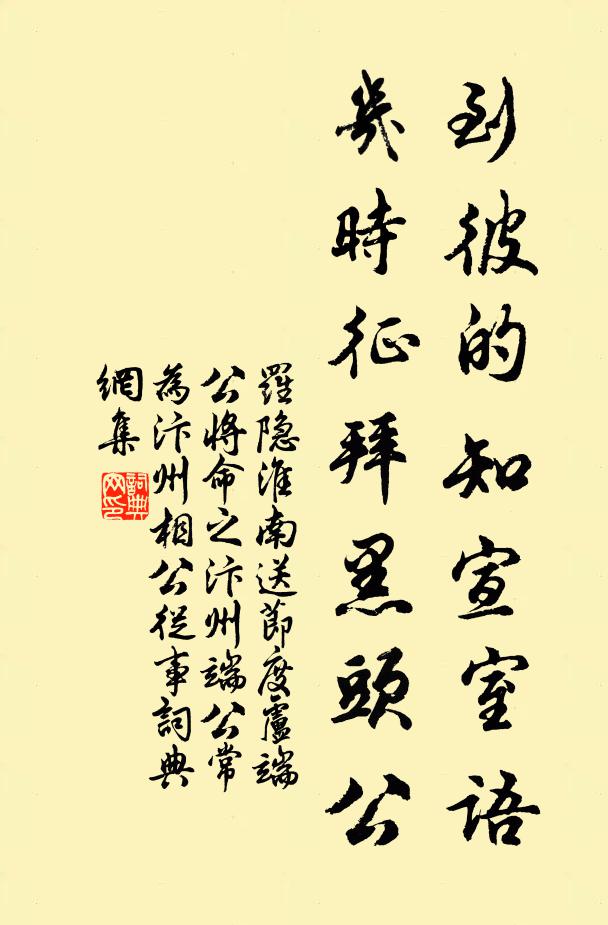 到彼的知宣室語
幾時征拜黑頭公
羅隐淮南送節度盧端
公將命之汴州端公常
為汴州相公從事詞典
網集
詞典網印